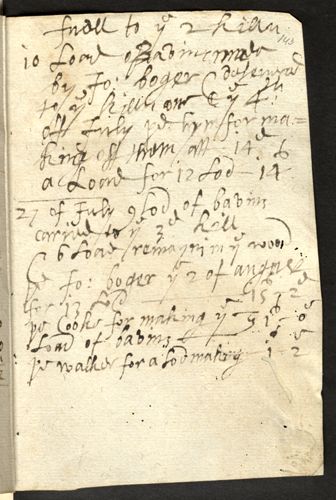 fuell to ye 2 Killn
143
10 Load of Bavins made
by Jo: boger delivered
to ye Killn on ye 4th
off July pd hym for ma=
king off them att 14d
a Load for 12 Lod - 14 - 6
27 of July 9 Lod of bavins
carried to ye 3d Kill
6 Load remayn in ye wood
pd Jo: boger ye 2 of august
for 13 Lod - 15 - 2
pd Cooke for making ye 5
Load of bavins
pd walker for a Lod making 1 - 2